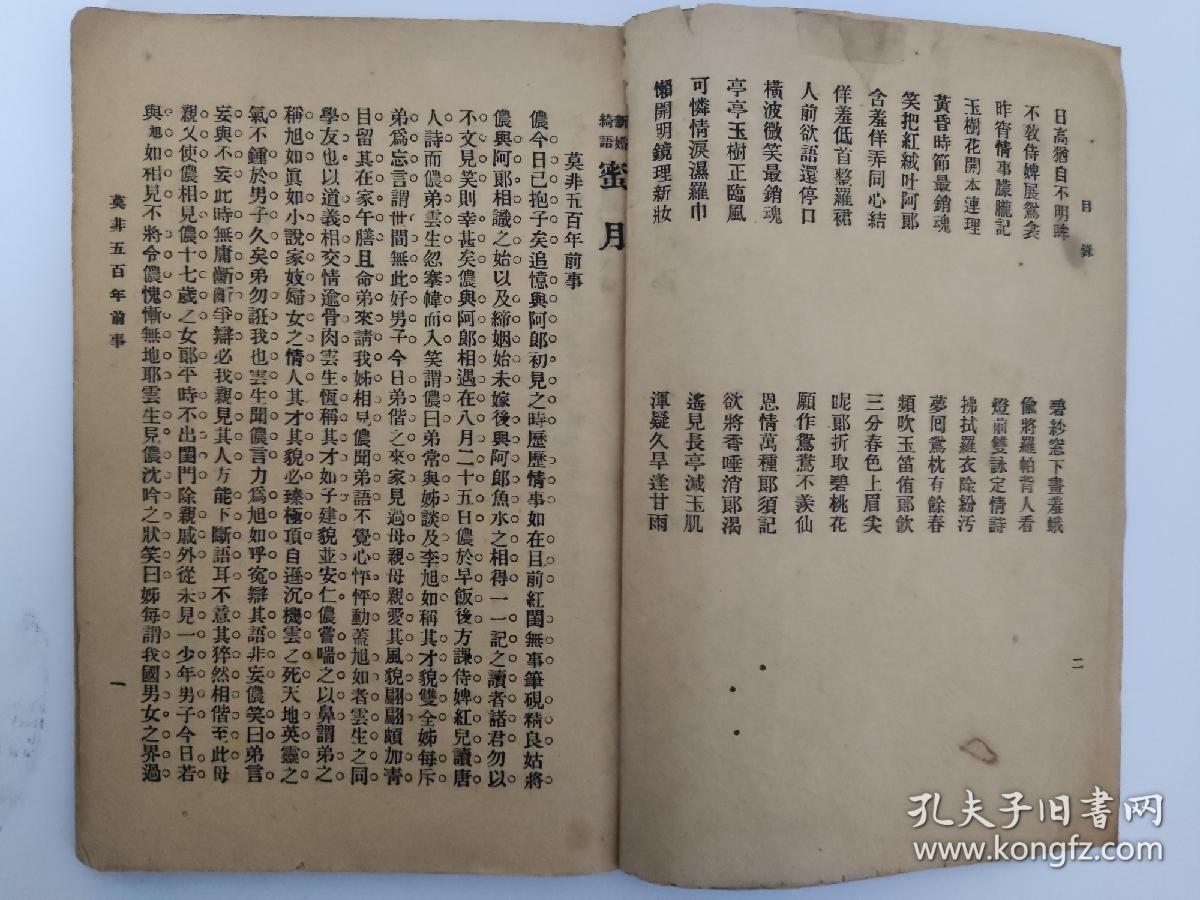 目錄
日高猶自不明眸
不教侍婢展鴛衾
昨宵情事朦朧記
玉樹花開本蓮理
黃昏時節最銷魂
笑把紅絨吐阿郎
含羞佯弄同心結
佯羞低首整羅裙
人前欲語還停口
橫波微笑最銷魂
亭亭玉樹正臨風
可憐情淚濕羅巾
懶開明鏡理新妝
碧紗窓下畫羞蛾
偸將羅帕背人看
燈前雙詠定情詩
拂拭羅衣除紛汚
夢囘鴛枕有餘春
頻吹玉笛侑郞飲
三分春色上眉尖
昵郞折取碧桃花
願作鴛鴦不羨仙
恩情萬種郞須記
欲將香唾消郞渴
遙見長亭減玉肌
渾疑久旱逢甘雨
二
新婚
綺語
蜜月
莫非五百年前事
儂今日已抱子矣追憶與阿郞初見之時歷歷情事如在目前紅閨無事筆硯精良姑將
儂與阿郞相識之始以及締姻始末嫁後與阿郞魚水之相得一一記之讀者諸君勿以
不文見笑則幸甚矣儂與阿郞相遇在八月二十五日儂於早飯後方課侍婢紅兒讀唐
人詩而儂弟雲生忽搴幃而入笑謂儂曰弟常與姊談及李旭如稱其才貌雙全姊每斥
弟爲忘言謂世間無此好男子今日弟偕之來家見過母親母親愛其風貌翩翩頗加靑
目留其在家午膳且命弟來請我姊相見儂聞弟語不覺心怦怦動蓋旭如者雲生之同
學友也以道義相交情逾骨肉雲生恆稱其才如子建貌並安仁儂嘗喘之以鼻謂弟之
稱旭如眞如小說家妓婦女之情人其才其貌必臻極頂自遜沉機雲之死天地英靈之
氣不鍾於男子久矣弟勿誑我也雲生聞儂言力爲旭如呼寃辯其語非妄儂笑曰弟言
妄與不妄此時無庸齗齗爭辯必我親見其人方能下斷語耳不意其猝然相偕至此母
親又使儂相見儂十七歲之女郞平時不出閨門除親戚外從未見一少年男子今日若
與旭如相見不將令儂愧慚無地耶雲生見儂沈吟之狀笑曰姊每謂我國男女之界過
莫非五百年前事
一
孔夫子旧书网
www.kongfz.com